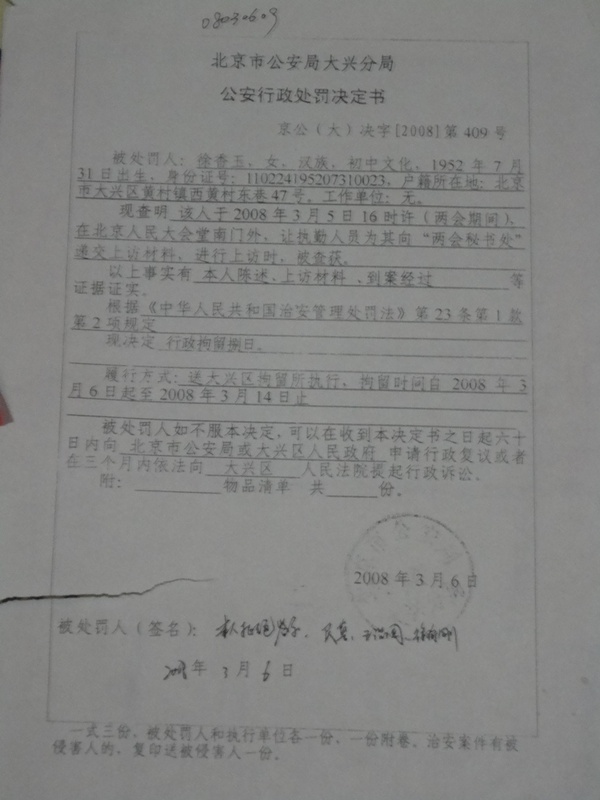 08030609
北京市公安局大兴分局
公安行政处罚决定书
京公(大)决字[2008]第 409 号
被处罚人:徐香玉,女,汉族,初中文化,1952 年 7 月
31 日出生,身份证号:110224195207310023,户籍所在地:北京
市大兴区黄村镇西黄村东巷 47 号,工作单位:无。
现查明 该人于 2008 年 3 月 5 日 16 时许(两会期间),
在北京人民大会堂南门外,让执勤人员为其向“两会秘书处”
递交上访材料,进行上访时,被查获。
以上事实有 本人陈述、上访材料、到案经过 等
证据证实。
根据《中华人民共和国治安管理处罚法》第 23 条第 1 款
第 2 项规定
现决定 行政拘留捌日。
履行方式:送大兴区拘留所执行,拘留时间自 2008 年 3
月 6 日起至 2008 年 3 月 14 日止
被处罚人如不服本决定,可以在收到本决定书之日起六十
日内向 北京市公安局或大兴区人民政府 申请行政复议或者
在三个月内依法向 大兴区 人民法院提起行政诉讼。
附: 物品清单 共 份。
2008 年 3 月 6 日
被处罚人(签名):
2008 年 3 月 6 日
一式三份,被处罚人和执行单位各一份、一份附卷。治安案件有被
侵害人的、复印送被侵害人一份。